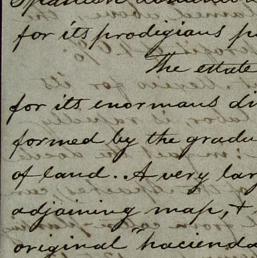 for its prodigious
The estate
for its enormous di
formed by the gradu
of land. A very lar
adjoining map, +
original "hacienda